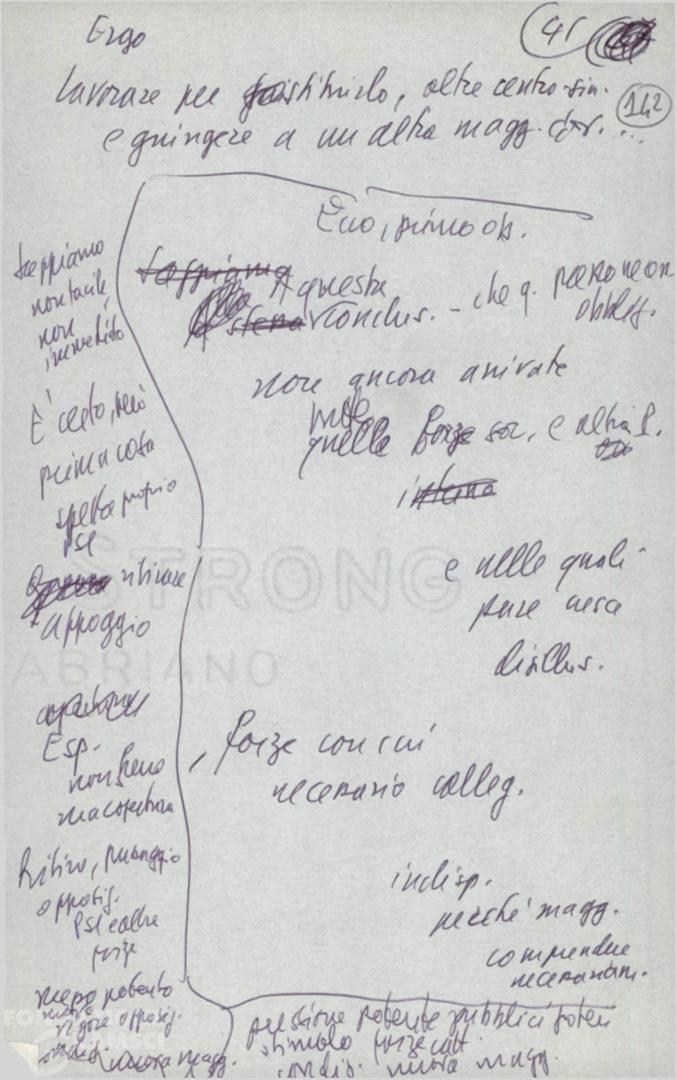 Ergo
41
142
lavorare per sostituirlo, oltre centro-sin.
e giungere a un'altra magg. ...
Ecco, primo ob.
Sappiamo
A questa
conclus. - che q. passo necess.
obblig.
non ancora arrivate
tutte
quelle forze soc. e altri P.
interno
e nelle quali
pure cresce
disillus.
forze con cui
necessario colleg.
indisp.
perché magg.
comprendere
necessariam.
Sappiamo
non facile,
non
immediato
È certo, però
prima cosa
spetta proprio
PSI
ritirare
appoggio
Esp.
non freno
ma copertura
Ritiro, passaggio
opposiz.
PSI e altre
forze
nuovo
vigore opposiz.
nuova magg.
pressione potente pubblici poteri
stimolo forze catt.
condiz. nuova magg.
STRONG
FABRIANO